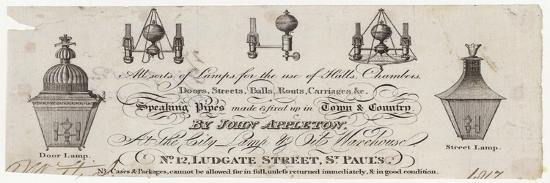 All sorts of Lamps for the use of Halls, Chambers,
Doors, Streets, Balls, Routs, Carriages &c.
Speaking Pipes made & fixed up in Town & Country
By JOHN APPLETON.
At the City Lamp & Oil Warehouse
No. 12, LUDGATE STREET, St. PAULS.
Door Lamp.
Street Lamp.
NB. Cases & Packages, cannot be allowed for in full, unless returned immediately, & in good condition.